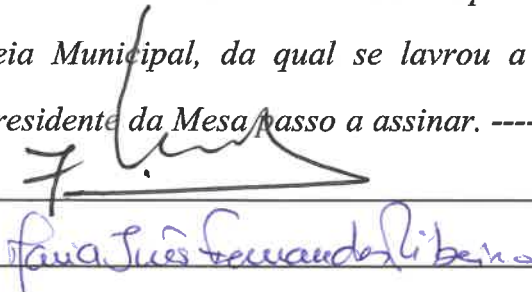 eia Municipal, da qual se lavrou a
residente da Mesa passo a assinar. ----
Maria Inês Fernandes Ribeiro